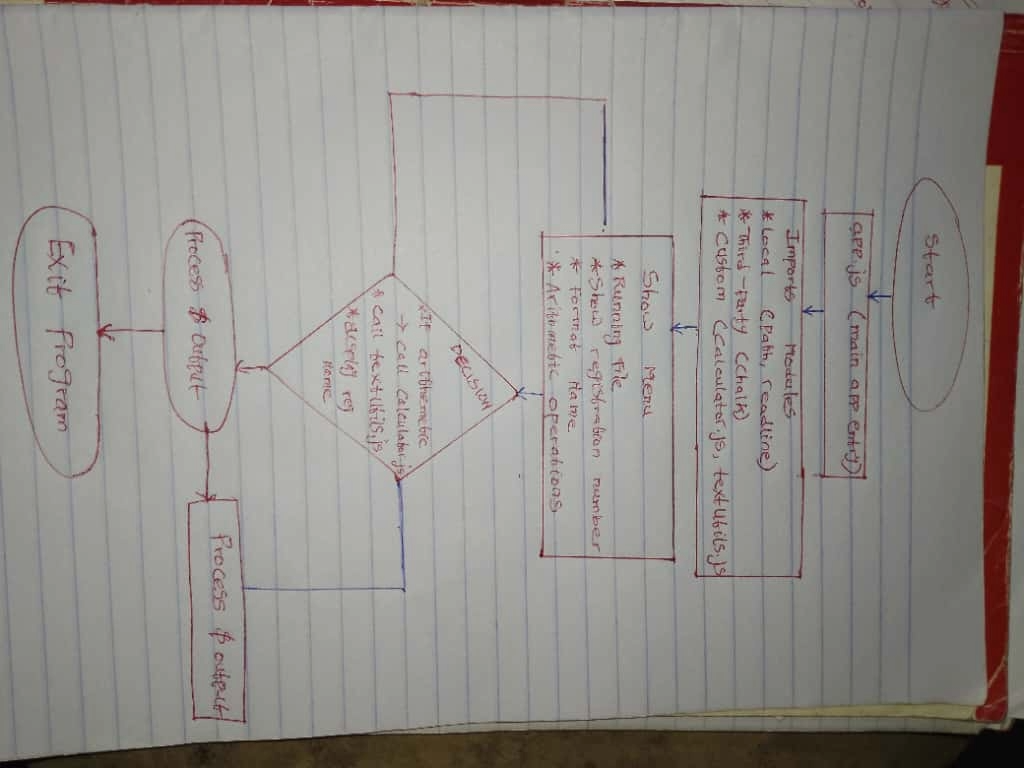 Start
app.js (main app entry)
Imports Modules
* Local (path, readline)
* Third-party (chalk)
* Custom (calculator.js, textUtils.js
Show Menu
* Running File
* Show registration number
* format Name
* Arithmetic operations
DECISION
* If arithmetic
→ call calculator.js
* Call textUtils.js
reg
Name
Process & Output
Process & output
Exit Program